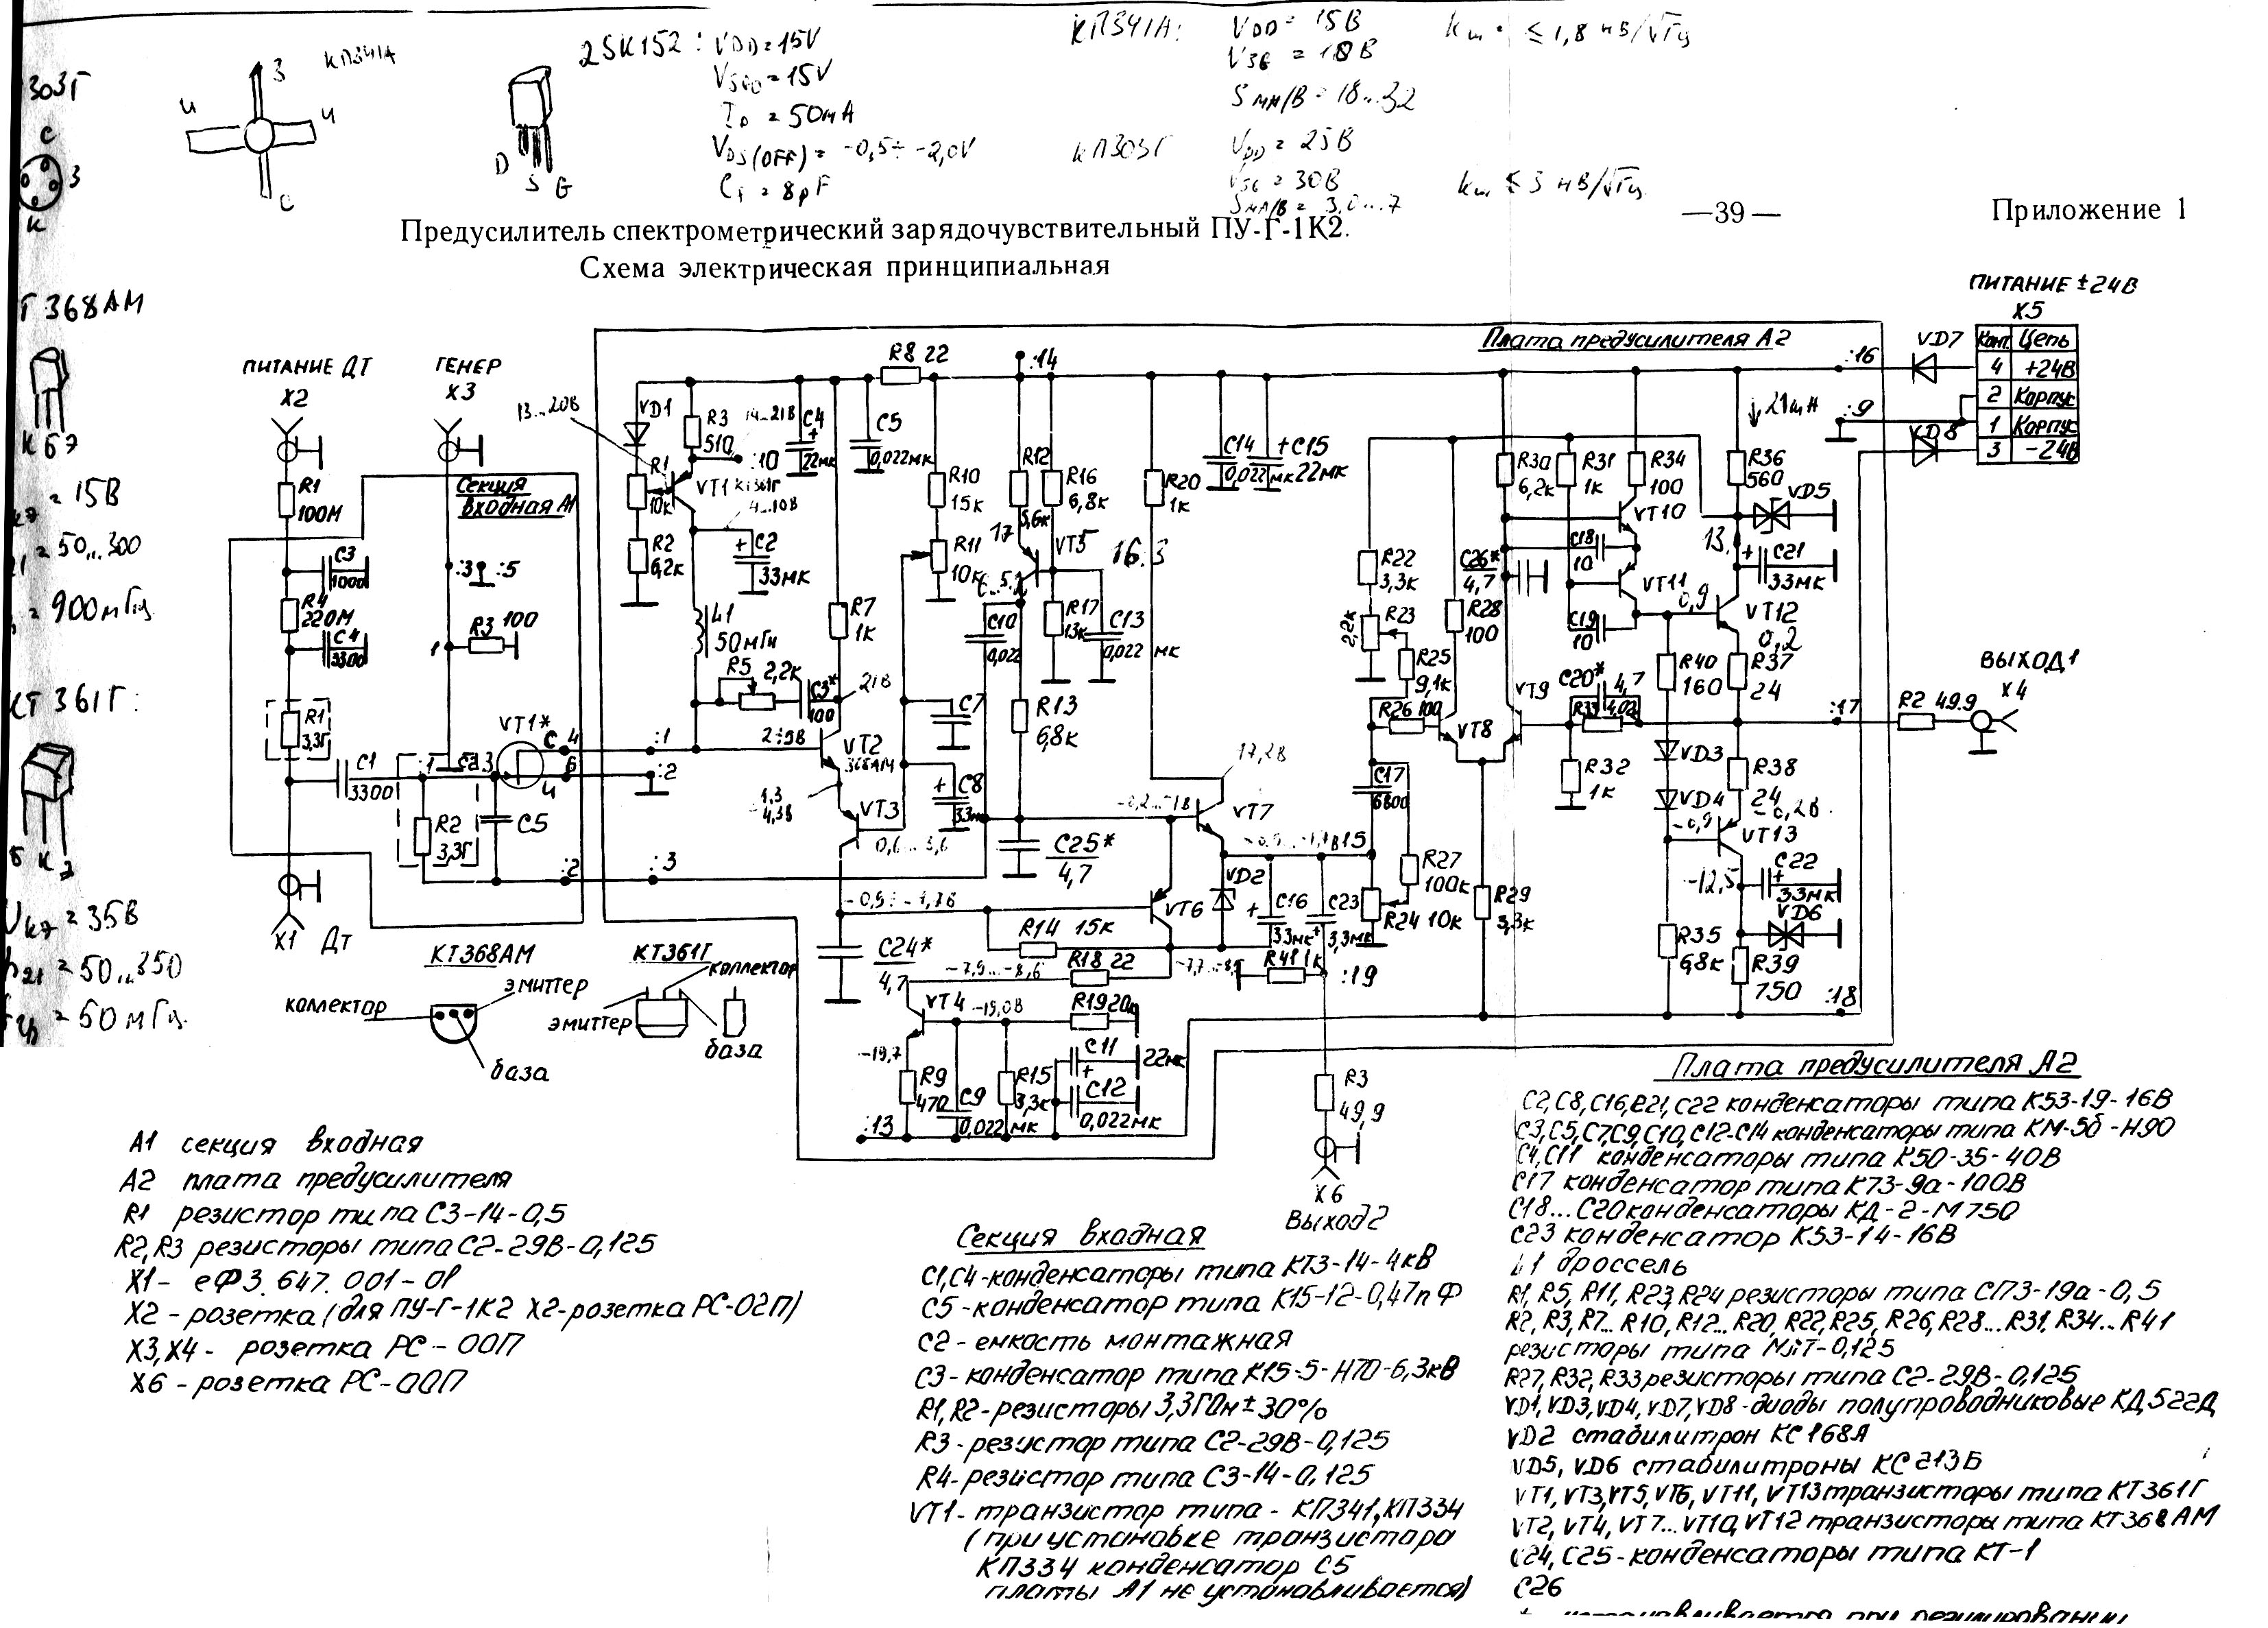 2SK152: VDD = 15V
= 15V
ID = 50мA
VDS(OFF) = -0,5 ÷ -2,0V
= 8pF
D S G
КП341А
З
И
И
С
КП341А: VDD = 15В
= 18В
S мА/В = 18...32
Kш = ≤ 1,8 нВ/√Гц
КП303Г VDD = 25В
= 30В
S мА/В = 3,0...7
Kш ≤ 3 нВ/√Гц
303Г
С
З
К
Т368АМ
К Б Э
= 15В
= 50...300
= 900мГц
КТ361Г:
Б К Э
Uкэ = 35В
h21 = 50...350
= 50мГц
—39—
Приложение 1
Предусилитель спектрометрический зарядочувствительный ПУ-Г-1К2.
Схема электрическая принципиальная
ПИТАНИЕ ±24В
X5
Конт. Цепь
4 +24В
2 Корпус
1 Корпус
3 -24В
VD7
VD8
:16
:9
Плата предусилителя А2
ПИТАНИЕ ДТ
X2
ГЕНЕР
X3
Секция
входная А1
R1
100М
C3
1000
R4
220М
C4
3300
R1
3,3Г
C1
3300
:3 :5
R3 100
1
VT1*
С 4
И 6
R2
3,3Г
C5
:1
:2
:2
:3
X1 ДТ
13...20В
VD1
R3
510
14...21В
:10
C4
22мк
C5
0,022мк
R8 22
:14
R1
10к
VT1 КТ361Г
4...10В
R2
6,2к
C2
33мк
L1
50мГн
R5 2,2к
C3*
100
R7
1к
21В
VT2
368АМ
VT3
R10
15к
R11
10к
C7
C8
33мк
R12
5,6к
17
R16
6,8к
VT5
R17
13к
C13
0,022 мк
C10
0,022
R13
6,8к
C25*
4,7
R20
1к
16.3
C14
0,022 мк
C15
22мк
17,2В
VT7
VT6
VD2
R14 15к
C24*
4,7
R18 22
VT4
-19,0В
R19
-19,7
R9
470
C9
0,022 мк
R15
3,3к
C11
22мк
C12
0,022мк
:13
C16
33мк
C23
3,3мк
R41 1к
:19
R24 10к
R27
100к
C17
6800
R22
3,3к
R23
2,2к
R25
9,1к
R26 100
VT8
VT9
R28
100
R29
3,3к
C26*
4,7
R30
6,2к
R31
1к
R34
100
VT10
C18
10
VT11
C19
10
R36
560
VD5
13
C21
33мк
0,9
VT12
0,2
R37
24
R40
160
C20*
4,7
R33 4,02
R32
1к
VD3
VD4
R38
24
-0,2В
-0,9
VT13
C22
33мк
-12,5
VD6
R35
6,8к
R39
750
:18
:17
R2 49.9
ВЫХОД1
X4
R3
49,9
X6
ВЫХОД2
КТ368АМ
коллектор
эмиттер
база
КТ361Г
коллектор
эмиттер
база
А1 секция входная
А2 плата предусилителя
R1 резистор типа С3-14-0,5
R2, R3 резисторы типа С2-29В-0,125
X1- еФ3.647.001-01
X2 - розетка (для ПУ-Г-1К2 X2-розетка РС-02П)
X3, X4 - розетка РС-00П
X6 - розетка РС-00П
Секция входная
С1, С4-конденсаторы типа КТ3-14-4кВ
С5-конденсатор типа К15-12-0,47пФ
С2-емкость монтажная
С3-конденсатор типа К15-5-Н70-6,3кВ
R1, R2-резисторы 3,3ГОм ± 30%
R3-резистор типа С2-29В-0,125
R4-резистор типа С3-14-0,125
VT1-транзистор типа - КП341, КП334
(при установке транзистора
КП334 конденсатор С5
платы А1 не устанавливается)
Плата предусилителя А2
С2, С8, С16, С21, С22 конденсаторы типа К53-19-16В
С3, С5, С7, С9, С10, С12-С14 конденсаторы типа КМ-5б-Н90
С4, С11 конденсаторы типа К50-35-40В
С17 конденсатор типа К73-9а-100В
С18...С20 конденсаторы КД-2-М750
С23 конденсатор К53-14-16В
L1 дроссель
R1, R5, R11, R23, R24 резисторы типа СП3-19а-0,5
R2, R3, R7...R10, R12...R20, R22, R25, R26, R28...R31, R34...R41
резисторы типа МЛТ-0,125
R27, R32, R33 резисторы типа С2-29В-0,125
VD1, VD3, VD4, VD7, VD8-диоды полупроводниковые КД522Д
VD2 стабилитрон КС168А
VD5, VD6 стабилитроны КС213Б
VT1, VT3, VT5, VT6, VT11, VT13 транзисторы типа КТ361Г
VT2, VT4, VT7...VT10, VT12 транзисторы типа КТ368АМ
С25-конденсаторы типа КТ-1
С26